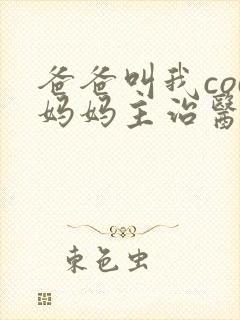 爸爸叫我co
妈妈主治醫
束色虫